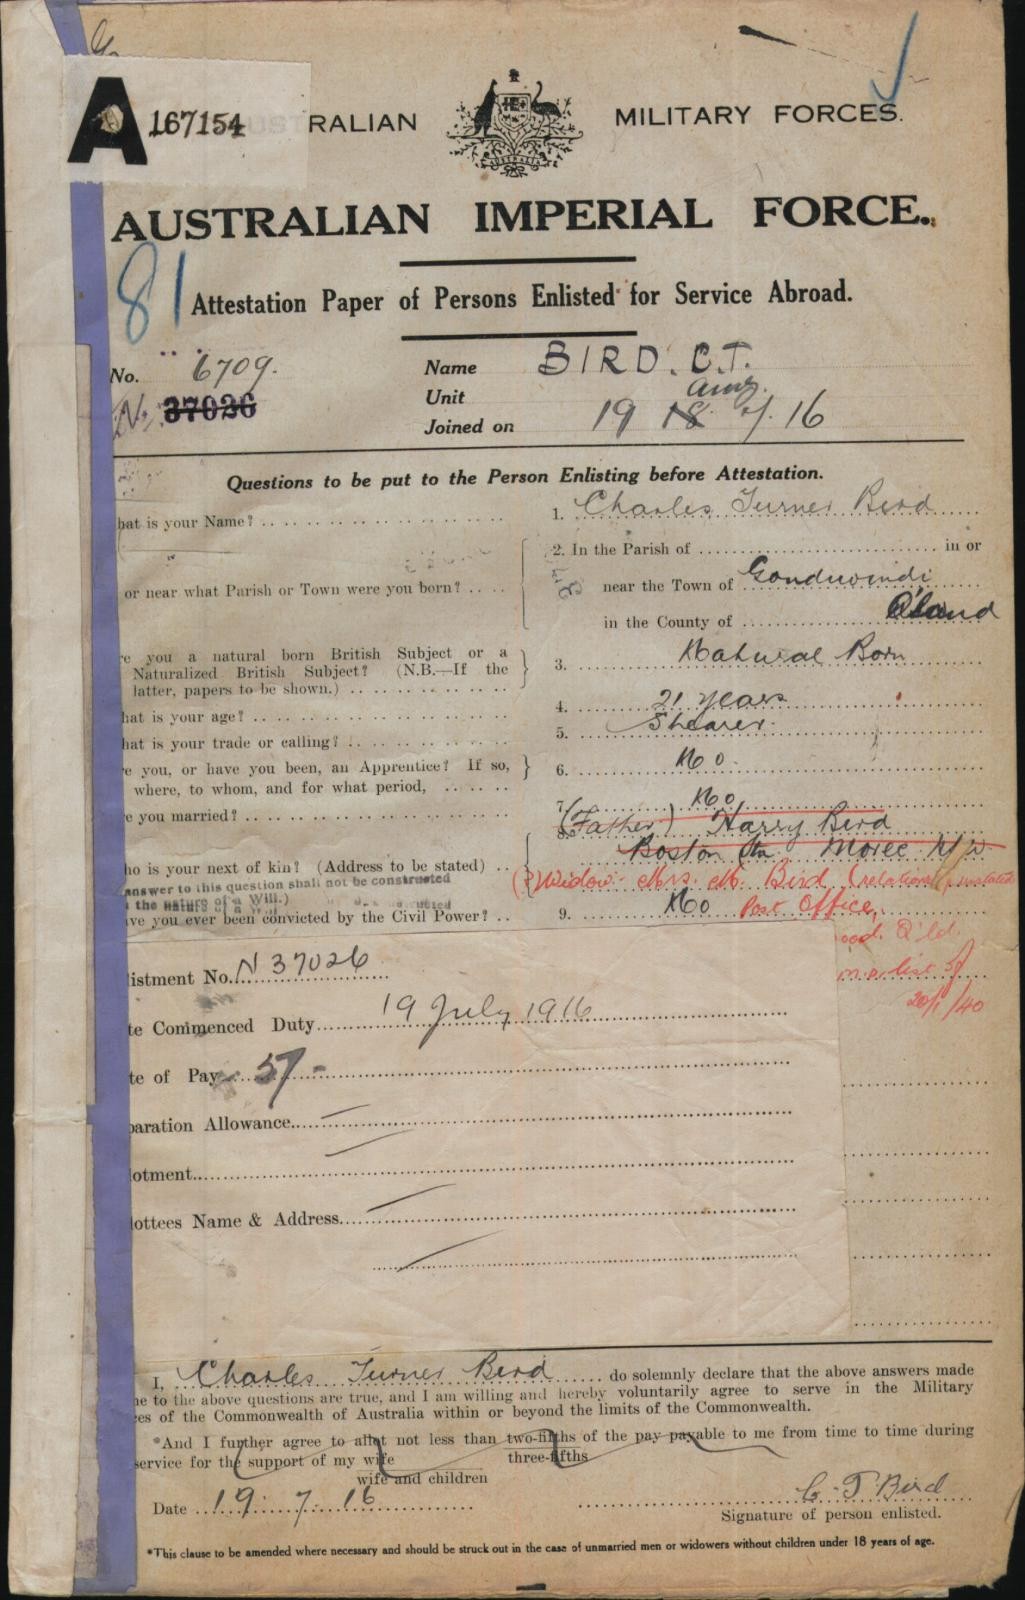 A 167154 RALIAN MILITARY FORCES.
AUSTRALIA
AUSTRALIAN IMPERIAL FORCE.
81
Attestation Paper of Persons Enlisted for Service Abroad.
No. 6709. Name BIRD. C.T.
N. 37026 Unit
Joined on 19 18 7/16
Questions to be put to the Person Enlisting before Attestation.
hat is your Name? 1. Charles Turner Bird
2. In the Parish of in or
or near what Parish or Town were you born? near the Town of Gondiwindi
in the County of Q'land
e you a natural born British Subject or a
Naturalized British Subject? (N.B.—If the 3. Natural Born
latter, papers to be shown.)
hat is your age? 4. 21 years
hat is your trade or calling? 5. Shearer.
e you, or have you been, an Apprentice? If so, 6. No.
where, to whom, and for what period,
e you married? 7. No
8. (Father) Harry Bird
Boston Stn Moree N/W
ho is your next of kin? (Address to be stated)
(?) Widow- Mrs. M. Bird (relation unstated
answer to this question shall not be constructed
the nature of a Will.)
ve you ever been convicted by the Civil Power? 9. No Post Office,
ood. Q'ld.
listment No. N 37026
20/1/40
te Commenced Duty 19 July 1916
te of Pay 5/-
paration Allowance
lotment
lottees Name & Address
I, Charles Turner Bird do solemnly declare that the above answers made
ne to the above questions are true, and I am willing and hereby voluntarily agree to serve in the Military
es of the Commonwealth of Australia within or beyond the limits of the Commonwealth.
*And I further agree to allot not less than two-fifths of the pay payable to me from time to time during
service for the support of my wife three-fifths
wife and children
Date 19. 7. 16 C. T Bird
Signature of person enlisted.
*This clause to be amended where necessary and should be struck out in the case of unmarried men or widowers without children under 18 years of age.